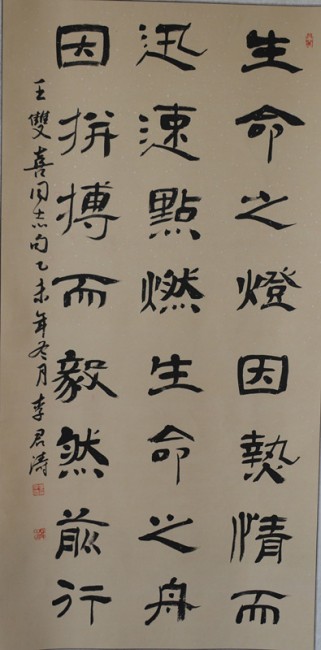 生命之燈因熱情而
迅速點燃生命之舟
因拼搏而毅然前行
王雙喜同志句乙未年冬月李君濤